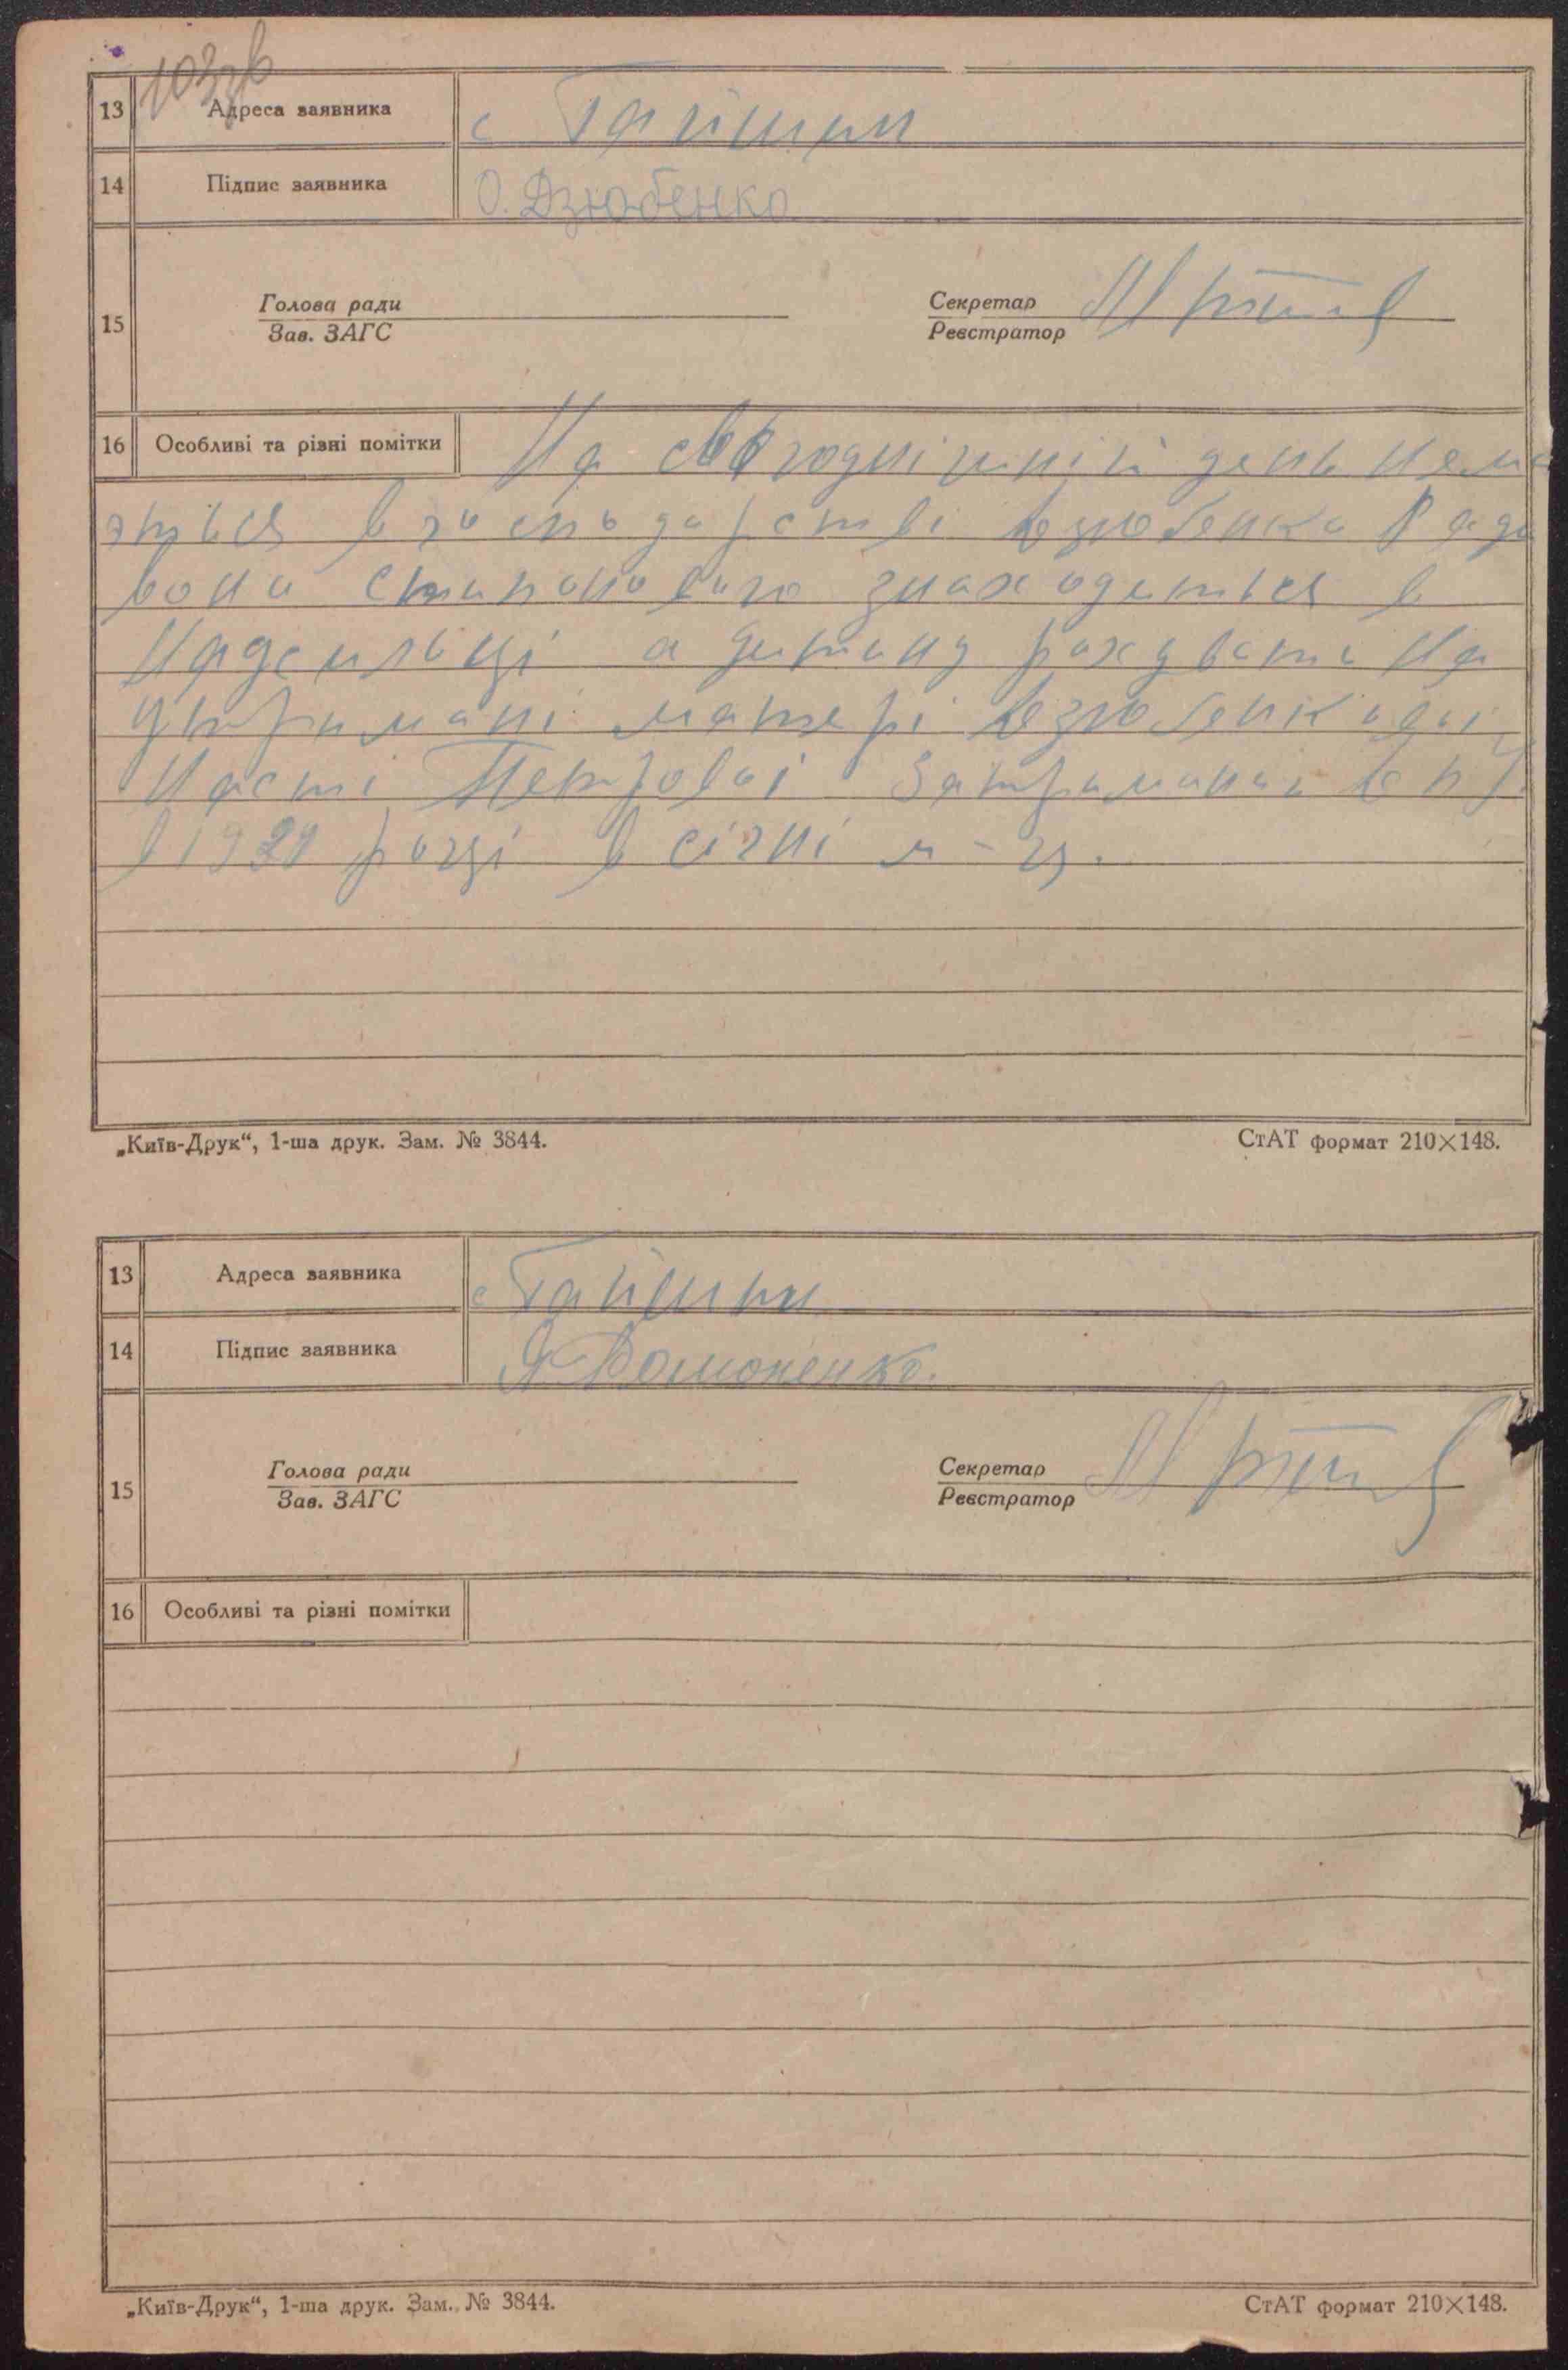 103зв
13 Адреса заявника с Гайшин
14 Підпис заявника О. Дзюбенко
15 Голова ради Секретар
Зав. ЗАГС Реєстратор
16 Особливі та різні помітки На сьогоднішній день
в господарстві Дзюбенка
знаходиться в
а дитину рахувати на
утримані матері Дзюбенкової
Насті Петрової
в 1931 році в січні м-ці.
„Київ-Друк“, 1-ша друк. Зам. № 3844. СтАТ формат 210×148.
13 Адреса заявника с Гайшин
14 Підпис заявника Я
15 Голова ради Секретар
Зав. ЗАГС Реєстратор
16 Особливі та різні помітки
„Київ-Друк“, 1-ша друк. Зам. № 3844. СтАТ формат 210×148.